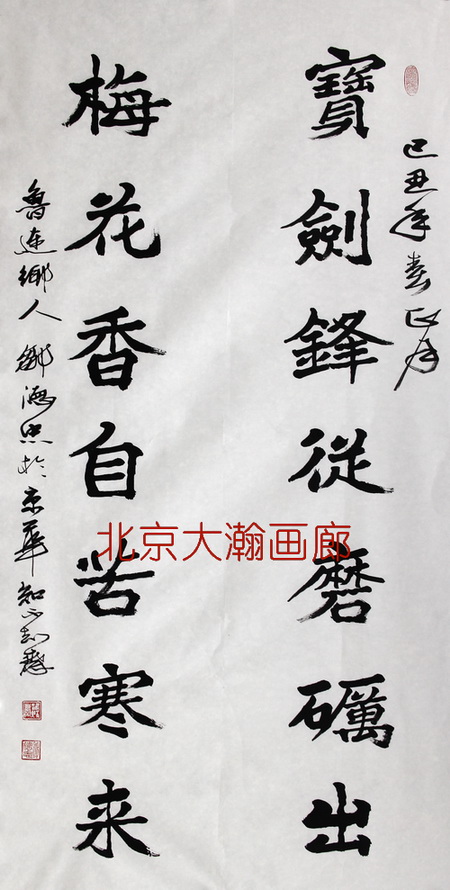 己丑年春正月
寶劍鋒從磨礪出
梅花香自苦寒来
魯連鄉人 海忠於京華知不
北京大瀚画廊